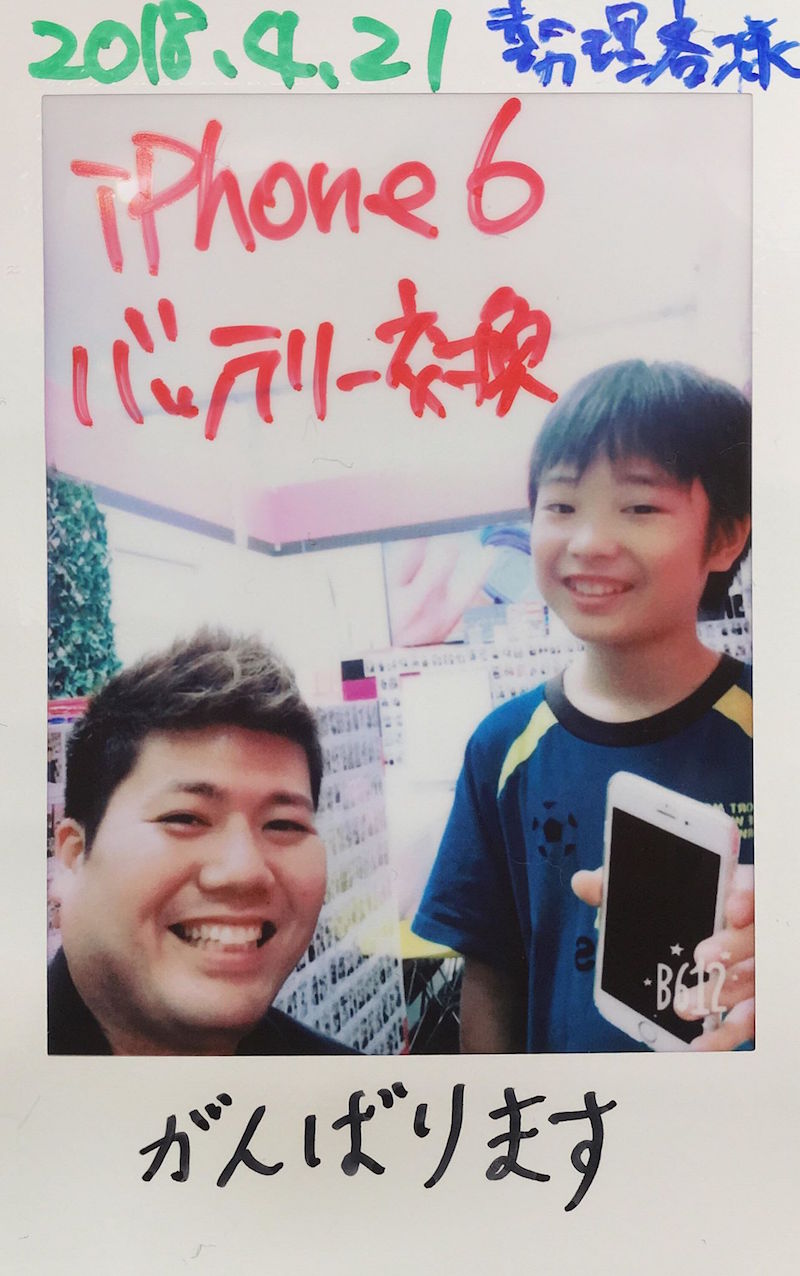 2018.4.21
理香様
iPhone6
バッテリー交換
B612
がんばります